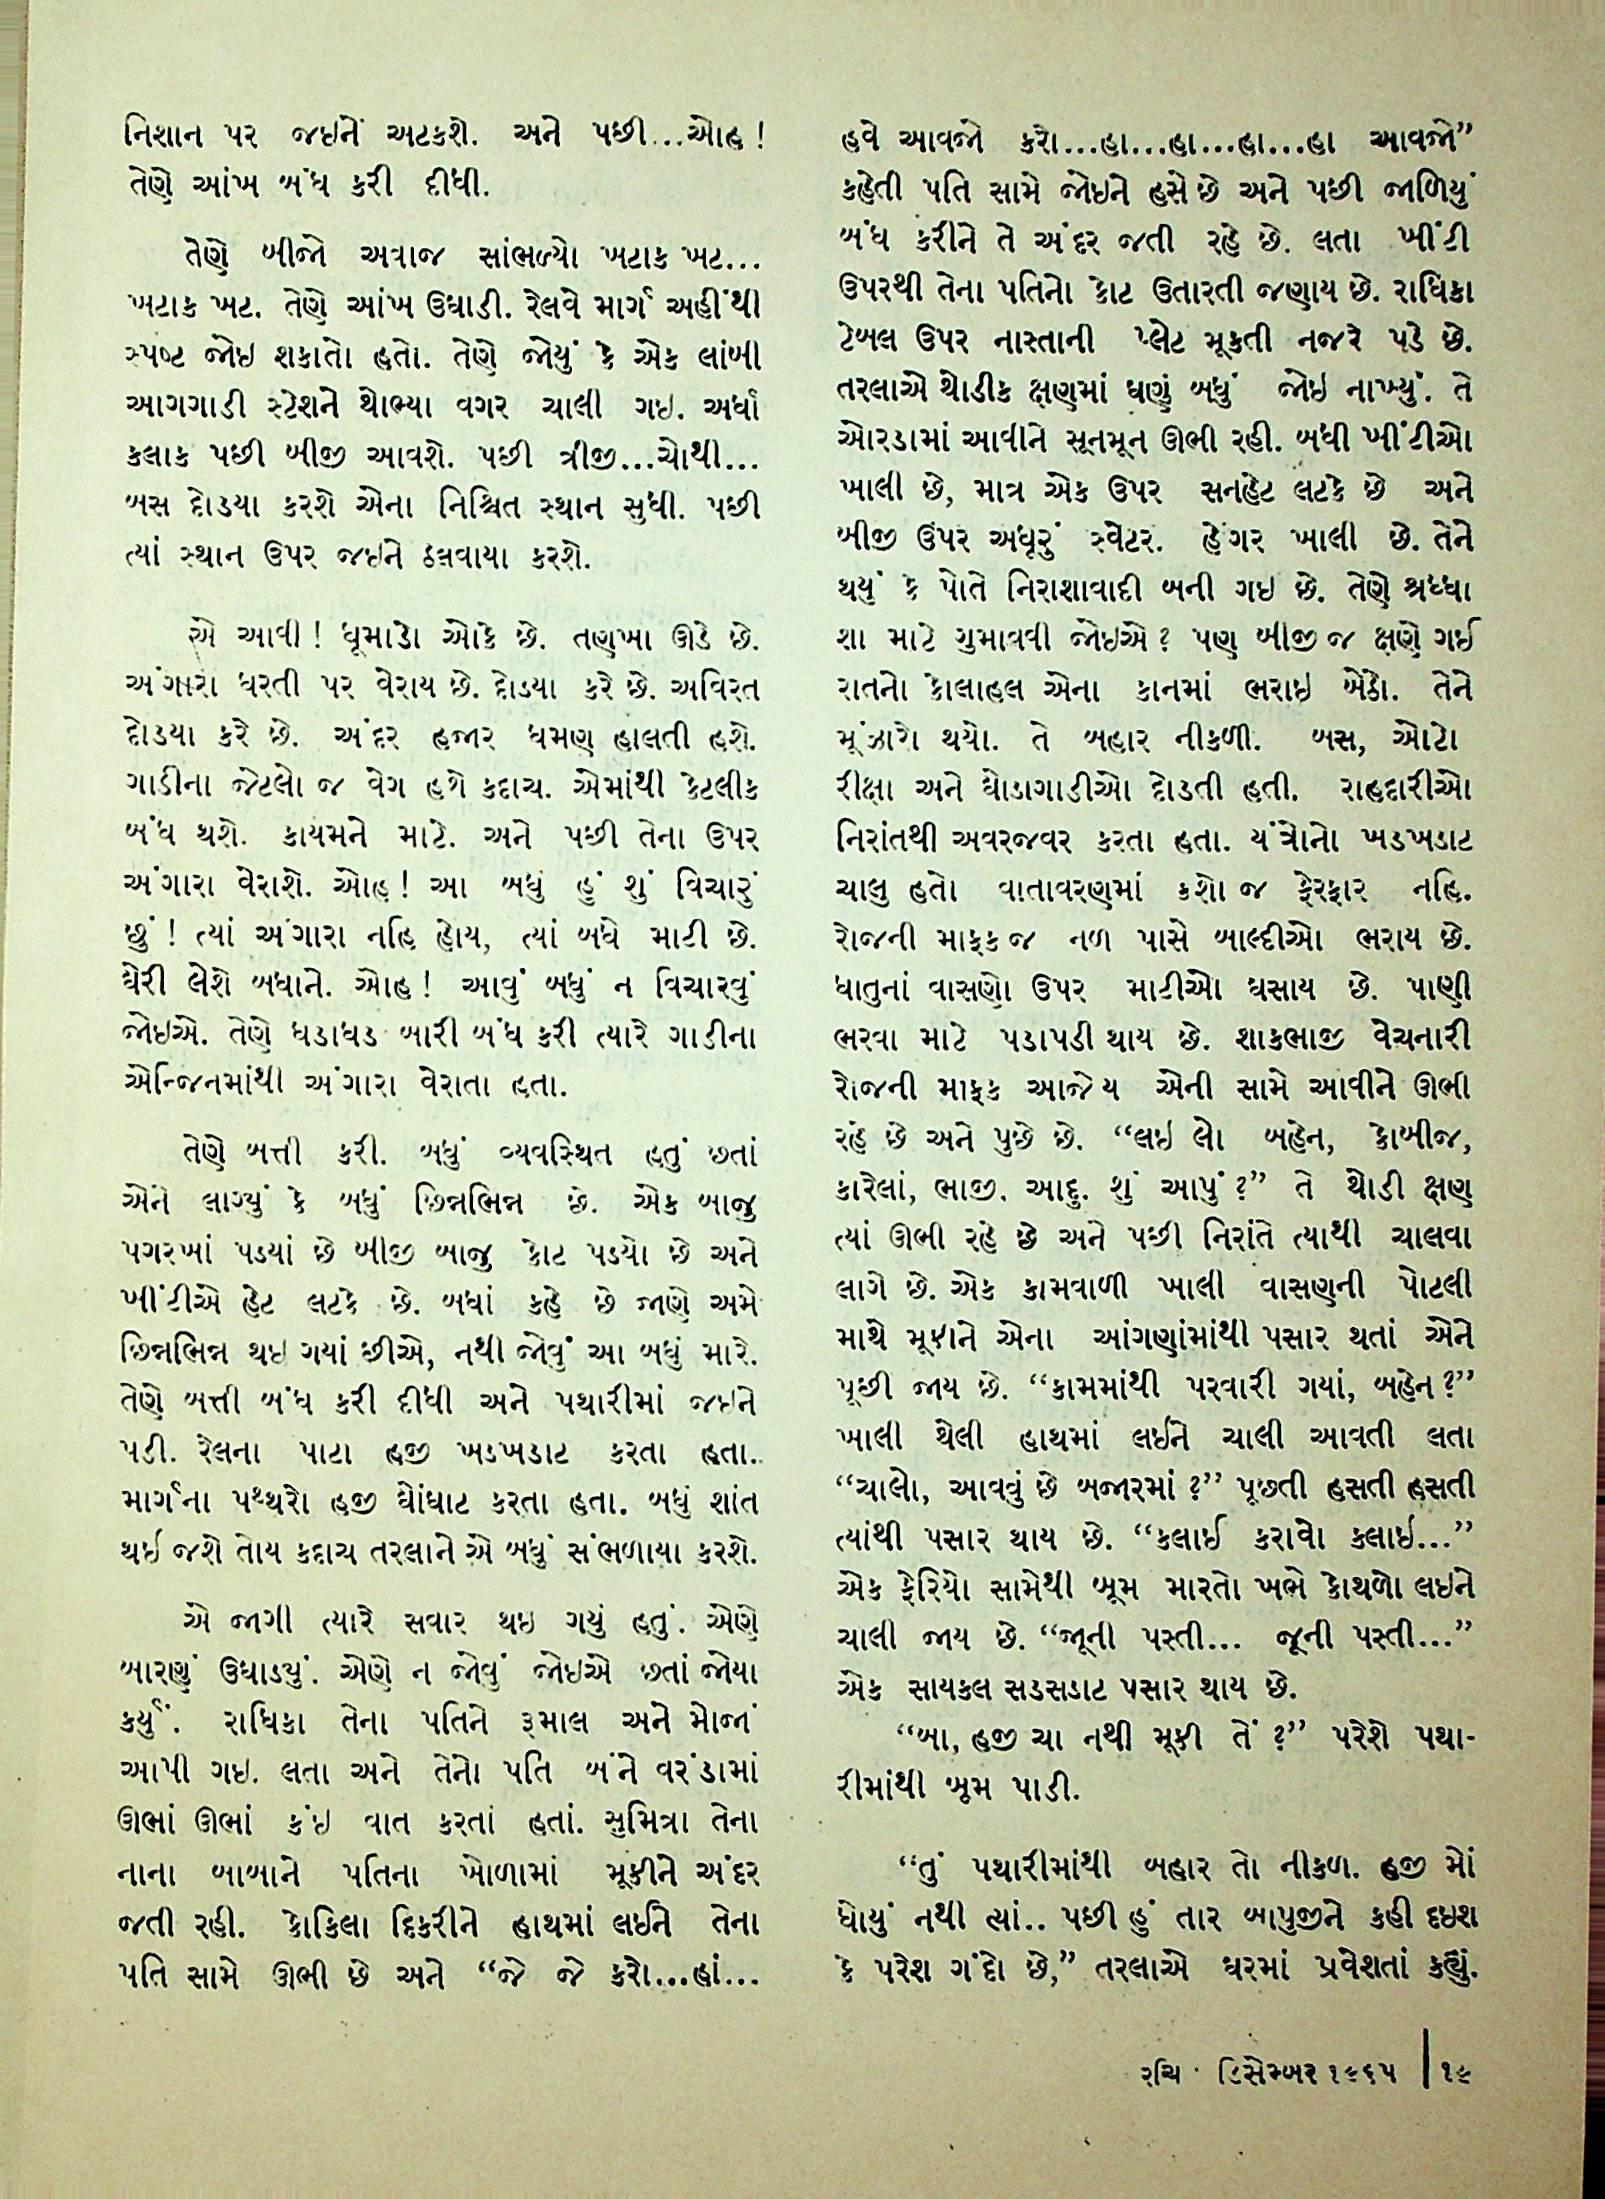 નિશાન પર જઇને અટકશે. અને પછી...ઓહ !
તેણે આંખ બંધ કરી દીધી.
તેણે બીજો અવાજ સાંભળ્યો ખટાક ખટ...
ખટાક ખટ. તેણે આંખ ઉઘાડી. રેલવે માર્ગ અહીંથી
સ્પષ્ટ જોઇ શકાતો હતો. તેણે જોયું કે એક લાંબી
આગગાડી સ્ટેશને થોભ્યા વગર ચાલી ગઇ. અર્ધા
કલાક પછી બીજી આવશે. પછી ત્રીજી...ચોથી...
બસ દોડયા કરશે એના નિશ્ચિત સ્થાન સુધી. પછી
ત્યાં સ્થાન ઉપર જઇને ઠલવાયા કરશે.
એ આવી ! ધૂમાડો ઓકે છે. તણખા ઊડે છે.
અંગારા ધરતી પર વેરાય છે. દોડયા કરે છે. અવિરત
દોડયા કરે છે. અંદર હજાર ધમણ હાલતી હશે.
ગાડીના જેટલો જ વેગ હશે કદાચ. એમાંથી કેટલીક
બંધ થશે. કાયમને માટે. અને પછી તેના ઉપર
અંગારા વેરાશે. ઓહ ! આ બધું હું શું વિચારું
છું ! ત્યાં અંગારા નહિ હોય, ત્યાં બધે માટી છે.
ઘેરી લેશે બધાને. ઓહ ! આવું બધું ન વિચારવું
જોઇએ. તેણે ધડાધડ બારી બંધ કરી ત્યારે ગાડીના
એન્જિનમાંથી અંગારા વેરાતા હતા.
તેણે બત્તી કરી. બધું વ્યવસ્થિત હતું છતાં
એને લાગ્યું કે બધું છિન્નભિન્ન છે. એક બાજુ
પગરખાં પડયાં છે બીજી બાજુ કોટ પડયો છે અને
ખીંટીએ હેટ લટકે છે. બધાં કહે છે જાણે અમે
છિન્નભિન્ન થઇ ગયાં છીએ, નથી જોવું આ બધું મારે.
તેણે બત્તી બંધ કરી દીધી અને પથારીમાં જઇને
પડી. રેલના પાટા હજી ખડખડાટ કરતા હતા.
માર્ગના પથ્થરો હજી ઘોંઘાટ કરતા હતા. બધું શાંત
થઈ જશે તોય કદાચ તરલાને એ બધું સંભળાયા કરશે.
એ જાગી ત્યારે સવાર થઇ ગયું હતું. એણે
બારણું ઉઘાડયું. એણે ન જોવું જોઇએ છતાં જોયા
કર્યું. રાધિકા તેના પતિને રૂમાલ અને મોજાં
આપી ગઇ. લતા અને તેનો પતિ બંને વરંડામાં
ઊભાં ઊભાં કંઇ વાત કરતાં હતાં. સુમિત્રા તેના
નાના બાબાને પતિના ખોળામાં મૂકીને અંદર
જતી રહી. કોકિલા દિકરીને હાથમાં લઈને તેના
પતિ સામે ઊભી છે અને “જે જે કરો...હાં...
હવે આવજો કરો...હા...હા...હા...હા આવજો”
કહેતી પતિ સામે જોઇને હસે છે અને પછી જાળિયું
બંધ કરીને તે અંદર જતી રહે છે. લતા ખીંટી
ઉપરથી તેના પતિનો કોટ ઉતારતી જણાય છે. રાધિકા
ટેબલ ઉપર નાસ્તાની પ્લેટ મૂકતી નજરે પડે છે.
તરલાએ થોડીક ક્ષણમાં ઘણું બધું જોઇ નાખ્યું. તે
ઓરડામાં આવીને સૂનમૂન ઊભી રહી. બધી ખીંટીઓ
ખાલી છે, માત્ર એક ઉપર સનહેટ લટકે છે અને
બીજી ઉપર અધૂરું સ્વેટર. હેંગર ખાલી છે. તેને
થયું કે પોતે નિરાશાવાદી બની ગઇ છે. તેણે શ્રધ્ધા
શા માટે ગુમાવવી જોઇએ ? પણ બીજી જ ક્ષણે ગઈ
રાતનો કોલાહલ એના કાનમાં ભરાઇ બેઠો. તેને
મૂંઝારો થયો. તે બહાર નીકળી. બસ, ઓટો
રીક્ષા અને ઘોડાગાડીઓ દોડતી હતી. રાહદારીઓ
નિરાંતથી અવરજવર કરતા હતા. યંત્રોનો ખડખડાટ
ચાલુ હતો વાતાવરણમાં કશો જ ફેરફાર નહિ.
રોજની માફક જ નળ પાસે બાલ્દીઓ ભરાય છે.
ધાતુનાં વાસણો ઉપર માટીઓ ઘસાય છે. પાણી
ભરવા માટે પડાપડી થાય છે. શાકભાજી વેચનારી
રોજની માફક આજે ય એની સામે આવીને ઊભી
રહે છે અને પુછે છે. “લઇ લો બહેન, કોબીજ,
કારેલાં, ભાજી. આદુ. શું આપું ?” તે થોડી ક્ષણ
ત્યાં ઊભી રહે છે અને પછી નિરાંતે ત્યાથી ચાલવા
લાગે છે. એક કામવાળી ખાલી વાસણની પોટલી
માથે મૂકીને એના આંગણાંમાંથી પસાર થતાં એને
પૂછી જાય છે. “કામમાંથી પરવારી ગયાં, બહેન ?”
ખાલી થેલી હાથમાં લઈને ચાલી આવતી લતા
“ચાલો, આવવું છે બજારમાં ?” પૂછતી હસતી હસતી
ત્યાંથી પસાર થાય છે. “કલાઈ કરાવો કલાઇ...”
એક ફેરિયો સામેથી બૂમ મારતો ખભે કોથળો લઇને
ચાલી જાય છે. “જૂની પસ્તી... જૂની પસ્તી...”
એક સાયકલ સડસડાટ પસાર થાય છે.
“બા, હજી ચા નથી મૂકી તેં ?” પરેશે પથા-
રીમાંથી બૂમ પાડી.
“તું પથારીમાંથી બહાર તો નીકળ. હજી મોં
ધોયું નથી ત્યાં.. પછી હું તાર બાપુજીને કહી દઇશ
કે પરેશ ગંદો છે,” તરલાએ ઘરમાં પ્રવેશતાં કહ્યું.
રુચિ · ડિસેમ્બર ૧૯૬૫ | ૧૯